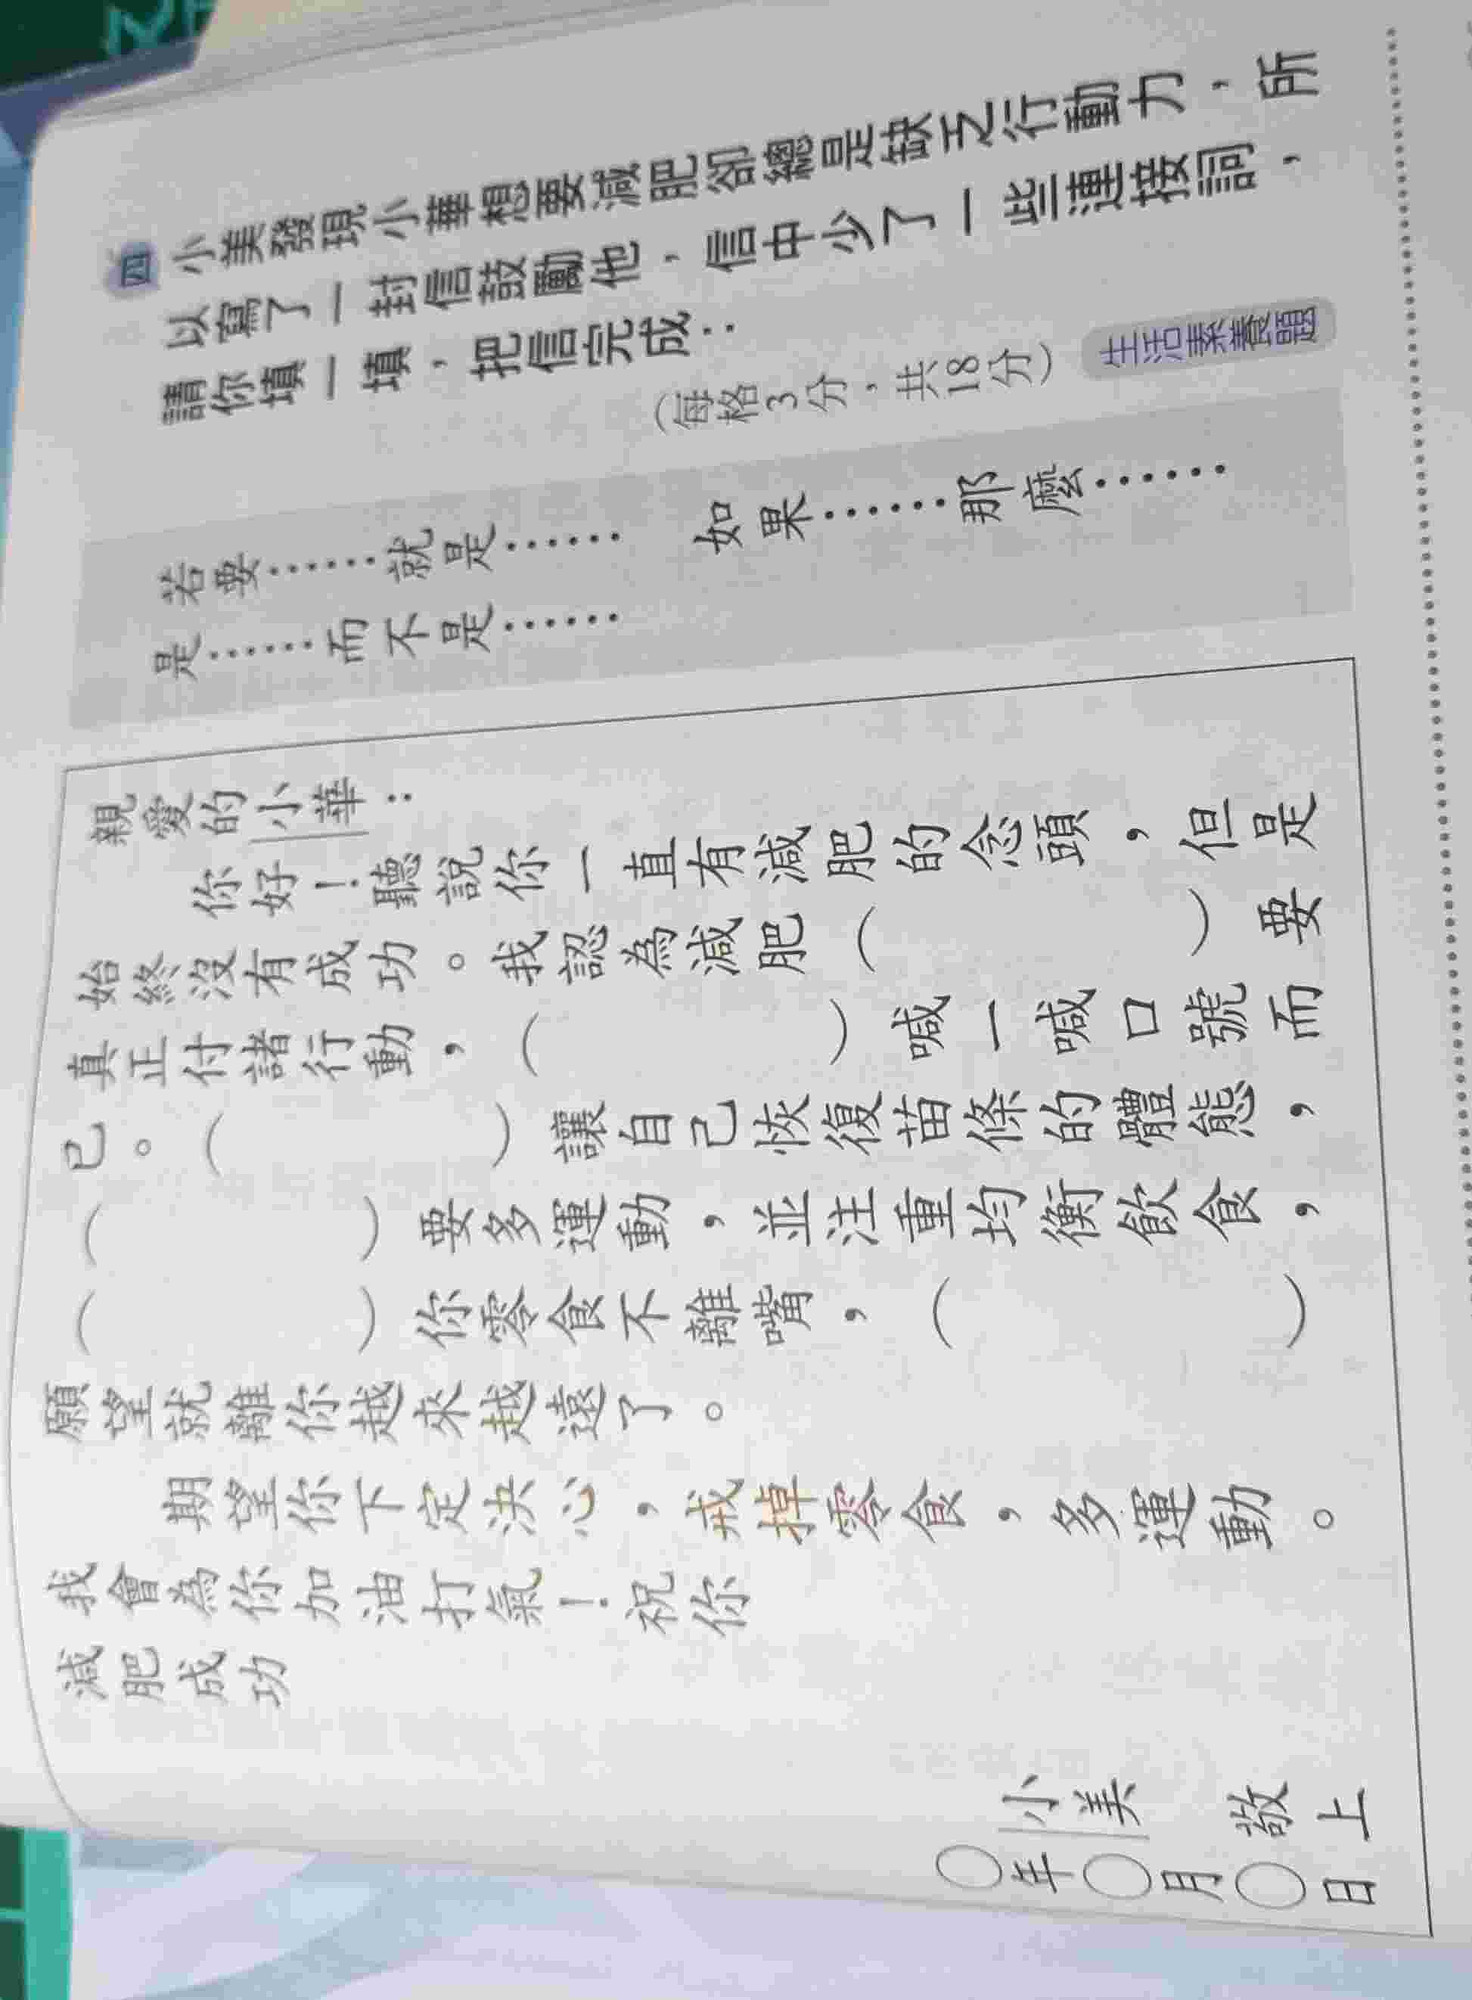 四 小美發現小華想要減肥卻總是缺乏行動力，所
以寫了一封信鼓勵他，信中少了一些連接詞，
請你填一填，把信完成：
（每格3分，共18分） 生活素養題
若要……就是…… 如果……那麼……
是……而不是……
親愛的小華：
你好！聽說你一直有減肥的念頭，但是
始終沒有成功。我認為減肥（ ）要
真正付諸行動，（ ）喊一喊口號而
已。（ ）讓自己恢復苗條的體態，
（ ）要多運動，並注重均衡飲食，
（ ）你零食不離嘴，（ ）
願望就離你越來越遠了。
期望你下定決心，戒掉零食，多運動。
我會為你加油打氣！祝你
減肥成功
小美 敬上
○年○月○日